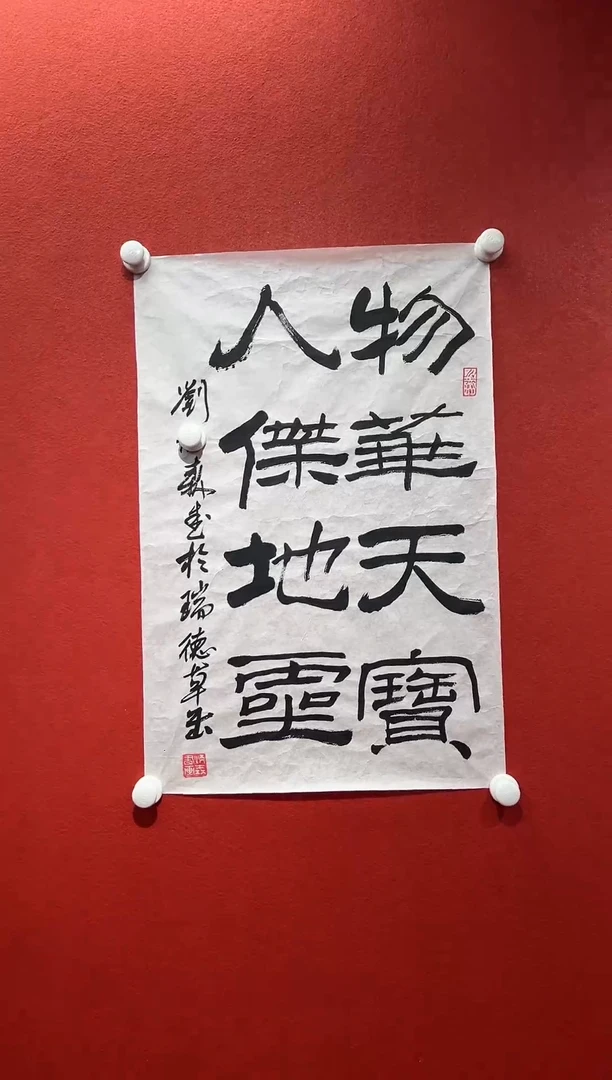 物華天寶
人傑地靈
劉 森书於瑞德草堂